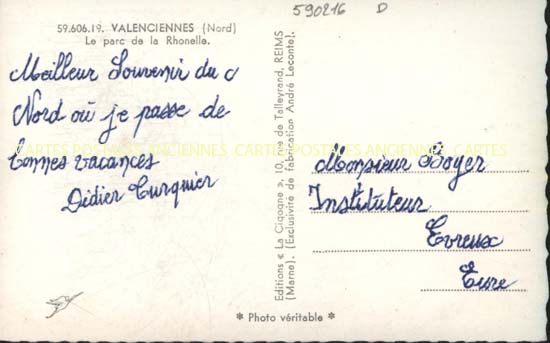 590216 D
59.606.19. VALENCIENNES (Nord)
Le parc de la Rhonelle.
Meilleur Souvenir du
Nord où je passe de
bonnes vacances
Didier Turquier
Editions « La Cigogne », 10, rue de Talleyrand, REIMS
(Marne). (Exclusivité de fabrication André Leconte).
Monsieur Boyer
Instituteur
Evreux
Eure
* Photo véritable *
CARTES POSTALES ANCIENNES CARTES POSTALES ANCIENNES CARTES